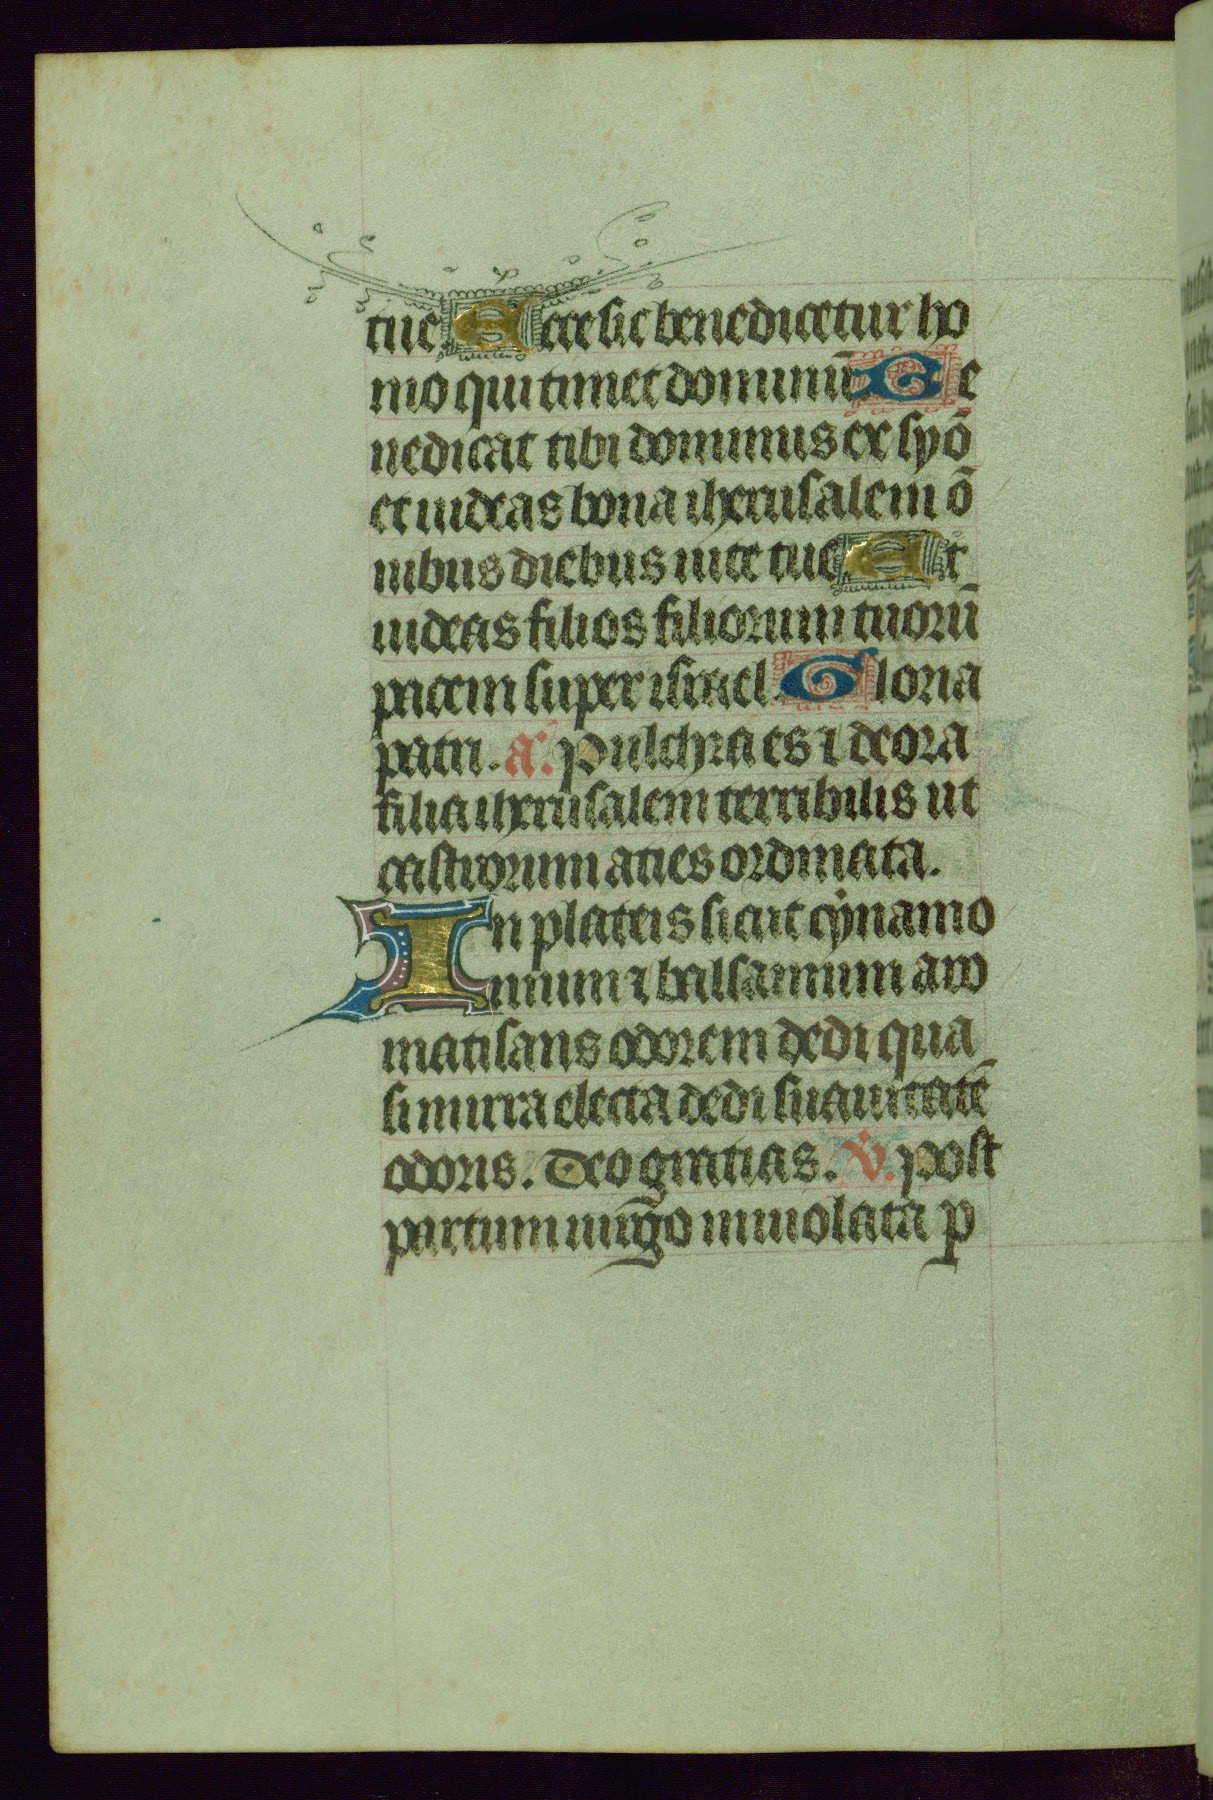 tue Ecce sic benedicetur ho
mo qui timet dominū Be
nedicat tibi dominus ex syō
et uideas bona iherusalem ō
nibus diebus uite tue Et
uideas filios filiorum tuorū
pacem super israel Gloria
patri. a. Pulchra es ⁊ decora
filia iherusalem terribilis ut
castrorum acies ordinata.
In plateis sicut cynamo
mum ⁊ balsamum aro
matisans odorem dedi qua
si mirra electa dedi suauitatē
odoris. Deo gratias. v. Post
partum uirgo inuiolata p